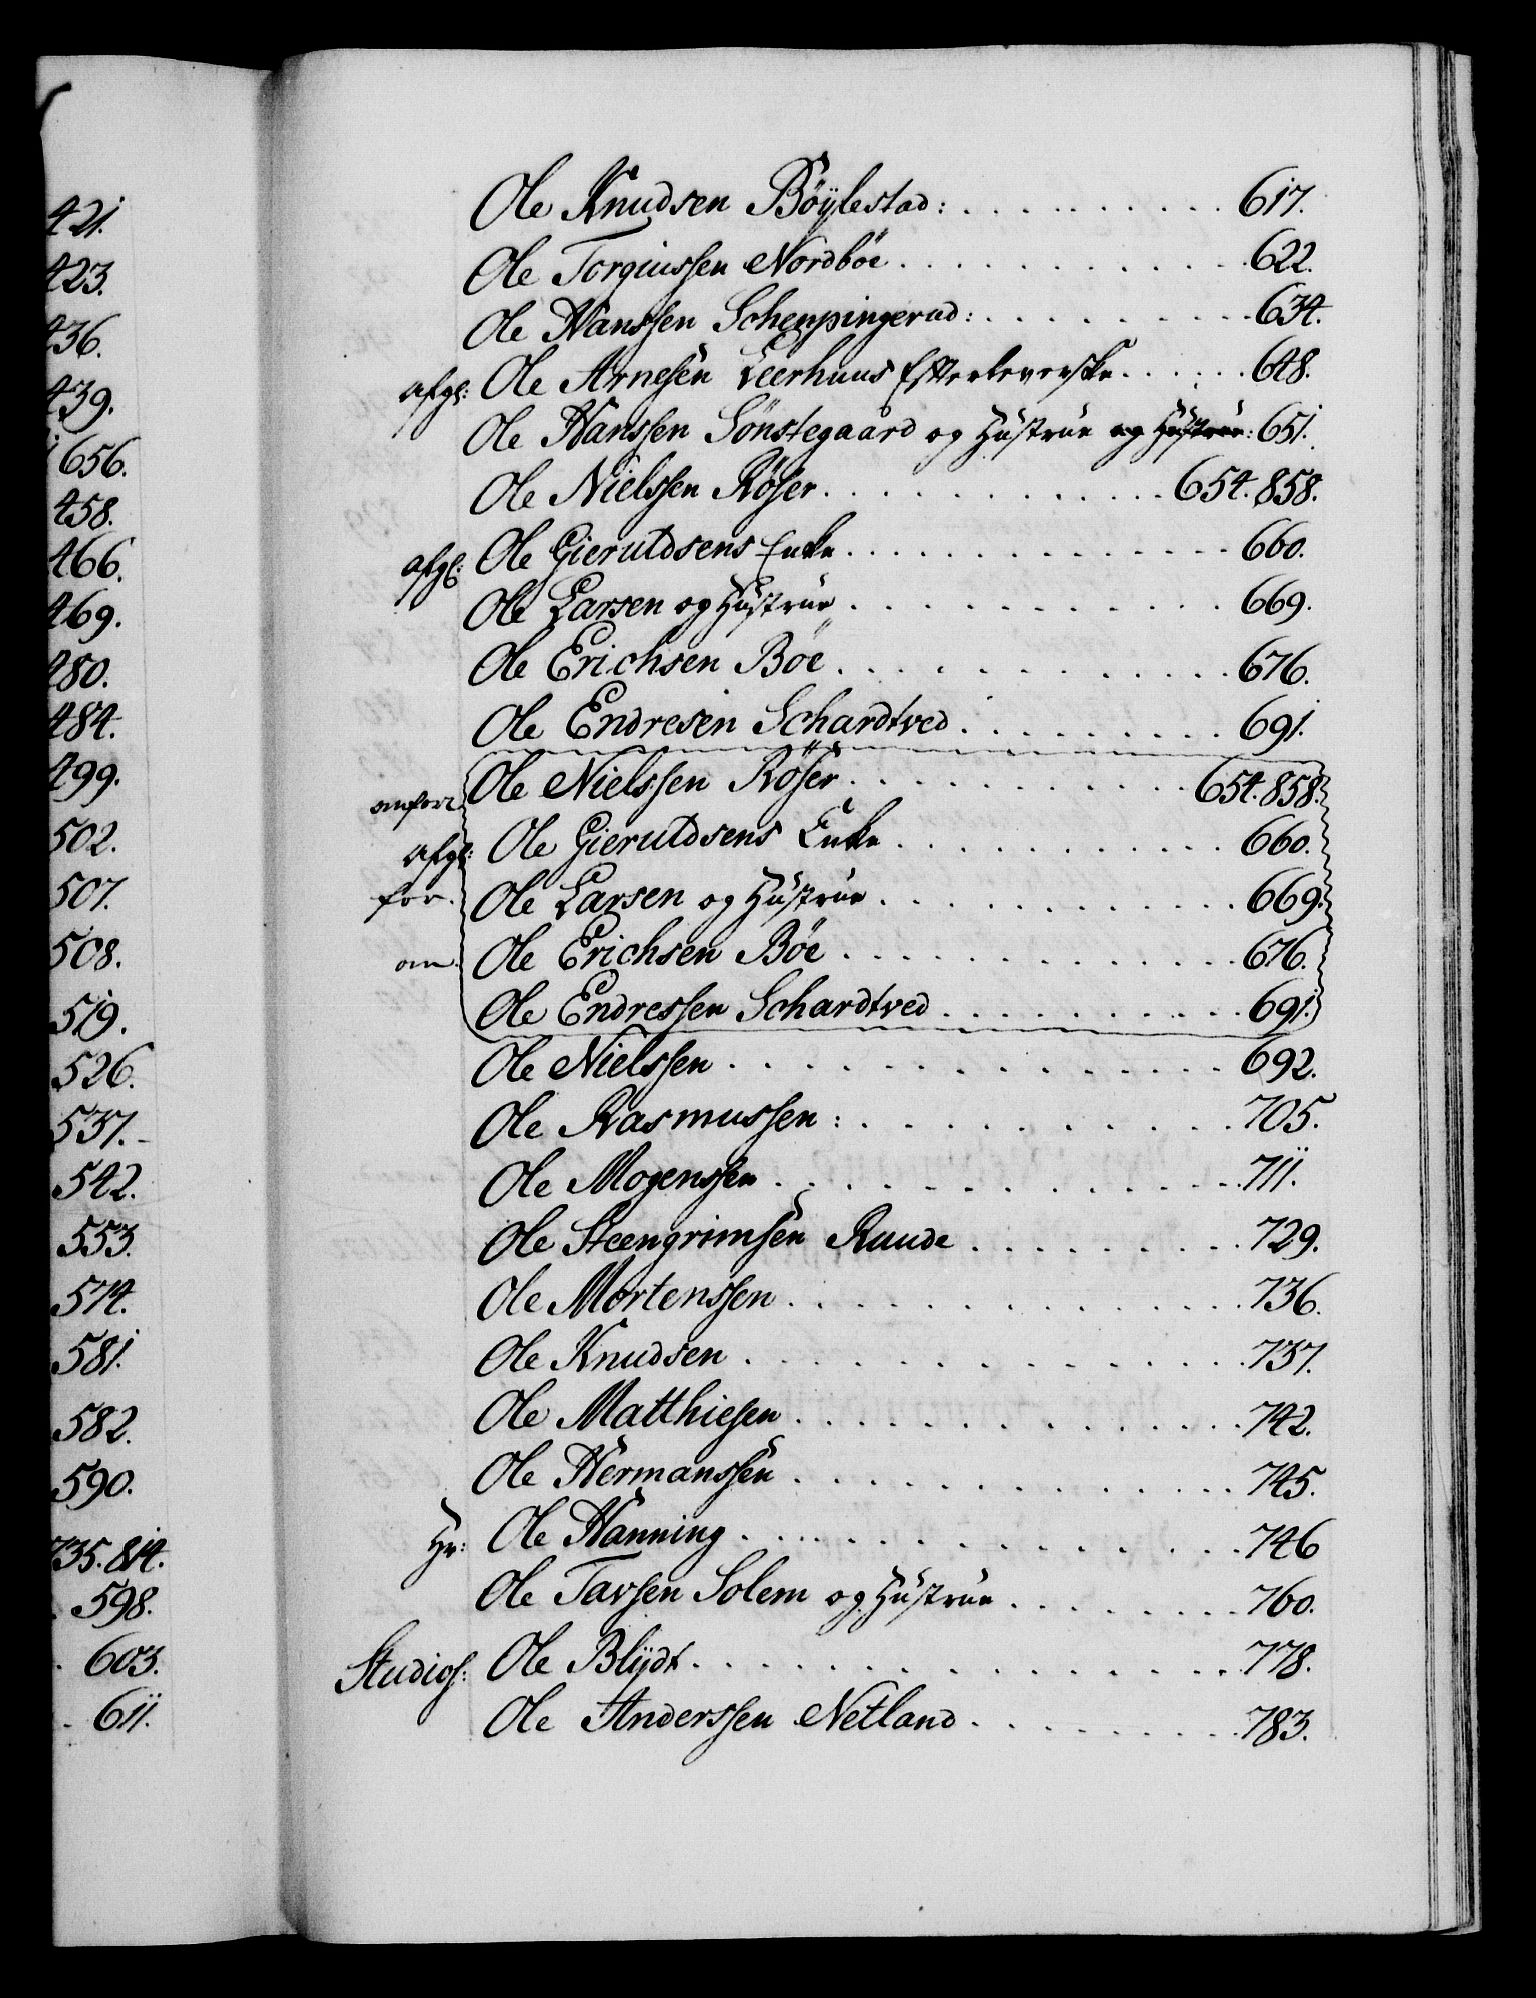 421.
423.
436.
439.
656.
458.
466.
469.
480.
484.
499.
502.
507.
508.
519.
526.
537.
542.
553.
574.
581.
582.
590.
735. 814.
598.
603.
611.
Ole Knudsen Böÿlestad: . . . . . . . . . . 617.
Ole Torgiussen Nordböe . . . . . . . . . . 622.
Ole Hanssen Schenpingerud: . . . . . . . . . . 634.
afg: Ole Arnesen Leerhuus Efterleverske . . . . . . 648.
Ole Hanssen Sönstegaard og Hustrue og Hustrue: 651.
Ole Nielssen Röser . . . . . . . . . . 654. 858.
afg: Ole Gieruldsens Enke . . . . . . . . . . 660.
Ole Larsen og Hustrue . . . . . . . . . . 669.
Ole Erichsen Böe . . . . . . . . . . 676.
Ole Endresen Schardtved . . . . . . . . . . 691.
anfört Ole Nielssen Röser . . . . . . . . . . 654. 858.
afg: Ole Gieruldsens Enke . . . . . . . . . . 660.
for. Ole Larsen og Hustrue . . . . . . . . . . 669.
Ole Erichsen Böe . . . . . . . . . . 676.
Ole Endressen Schardtved . . . . . . . . . . 691.
Ole Nielssen . . . . . . . . . . 692.
Ole Rasmussen: . . . . . . . . . . 705.
Ole Mogenssen . . . . . . . . . . 711.
Ole Steengrimsen Ruude . . . . . . . . . . 729.
Ole Mortenssen . . . . . . . . . . 736.
Ole Knudsen . . . . . . . . . . 737.
Ole Matthiesen . . . . . . . . . . 742.
Ole Hermanssen . . . . . . . . . . 745.
Hr: Ole Hanning . . . . . . . . . . 746
Ole Tavsen Solem og Hustrue . . . . . . . . . . 760.
Studios: Ole Blÿdt . . . . . . . . . . 778.
Ole Anderssen Netland . . . . . . . . . . 783.